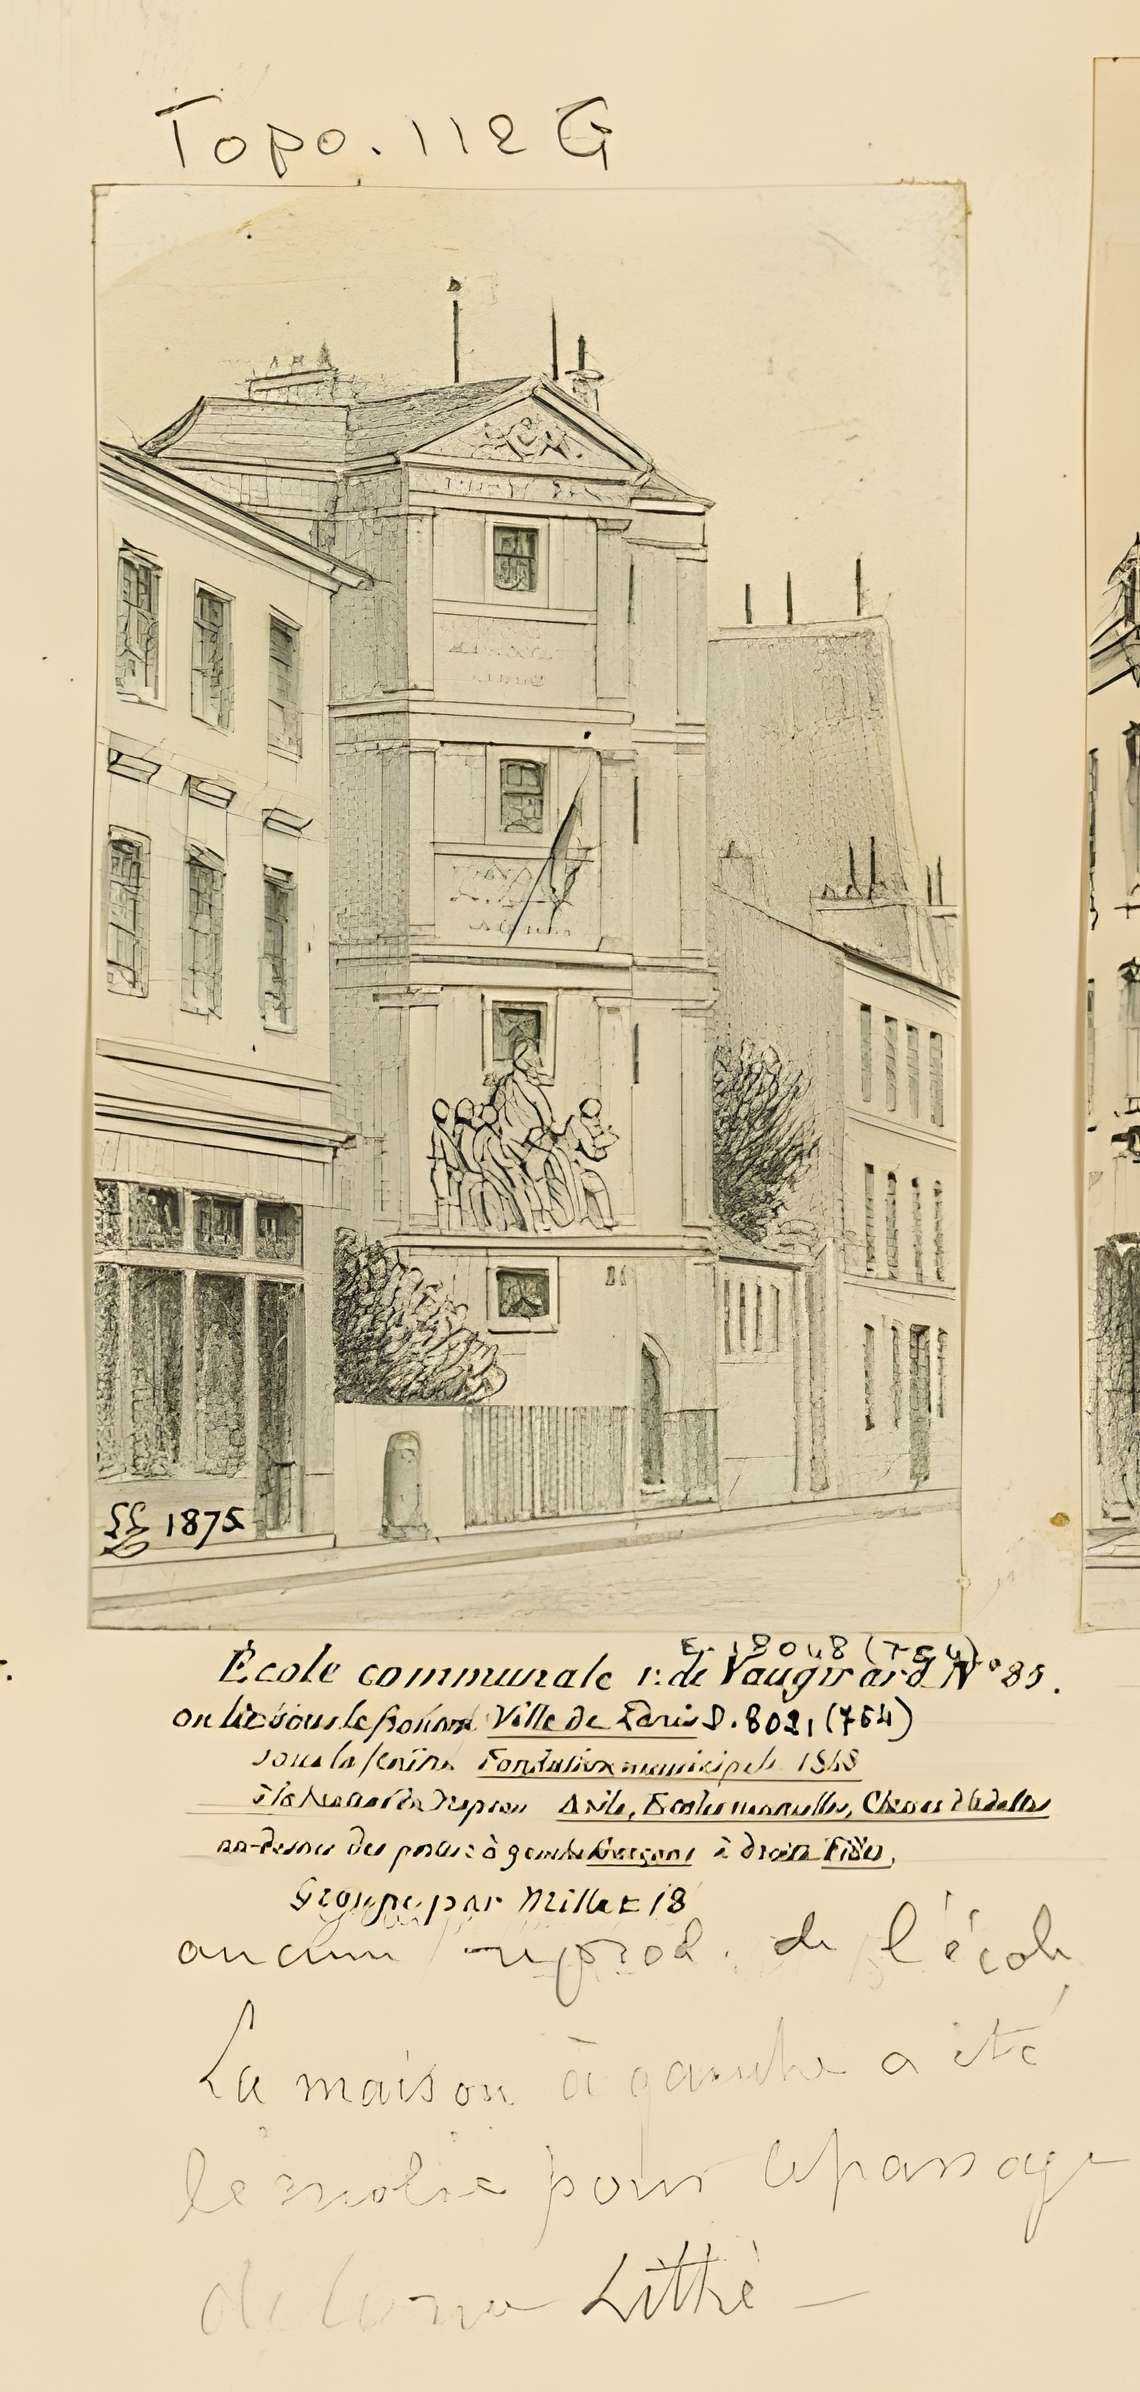 Topo. 112 G
1875
E. 18048 (754)
École communale r. de Vaugirard N° 85.
on lit sous le fronton Ville de Paris D. 8021 (754)
sous la Fondation municipale
à la hauteur du Asile, Ecoles mutuelles, Classes d'adultes
au-dessus des portes : à gauche Garçons à droite Filles.
Groupe par Millet 18
aucune reprod. de l'école
La maison à gauche a été
démolie pour le passage
de la rue Littré –